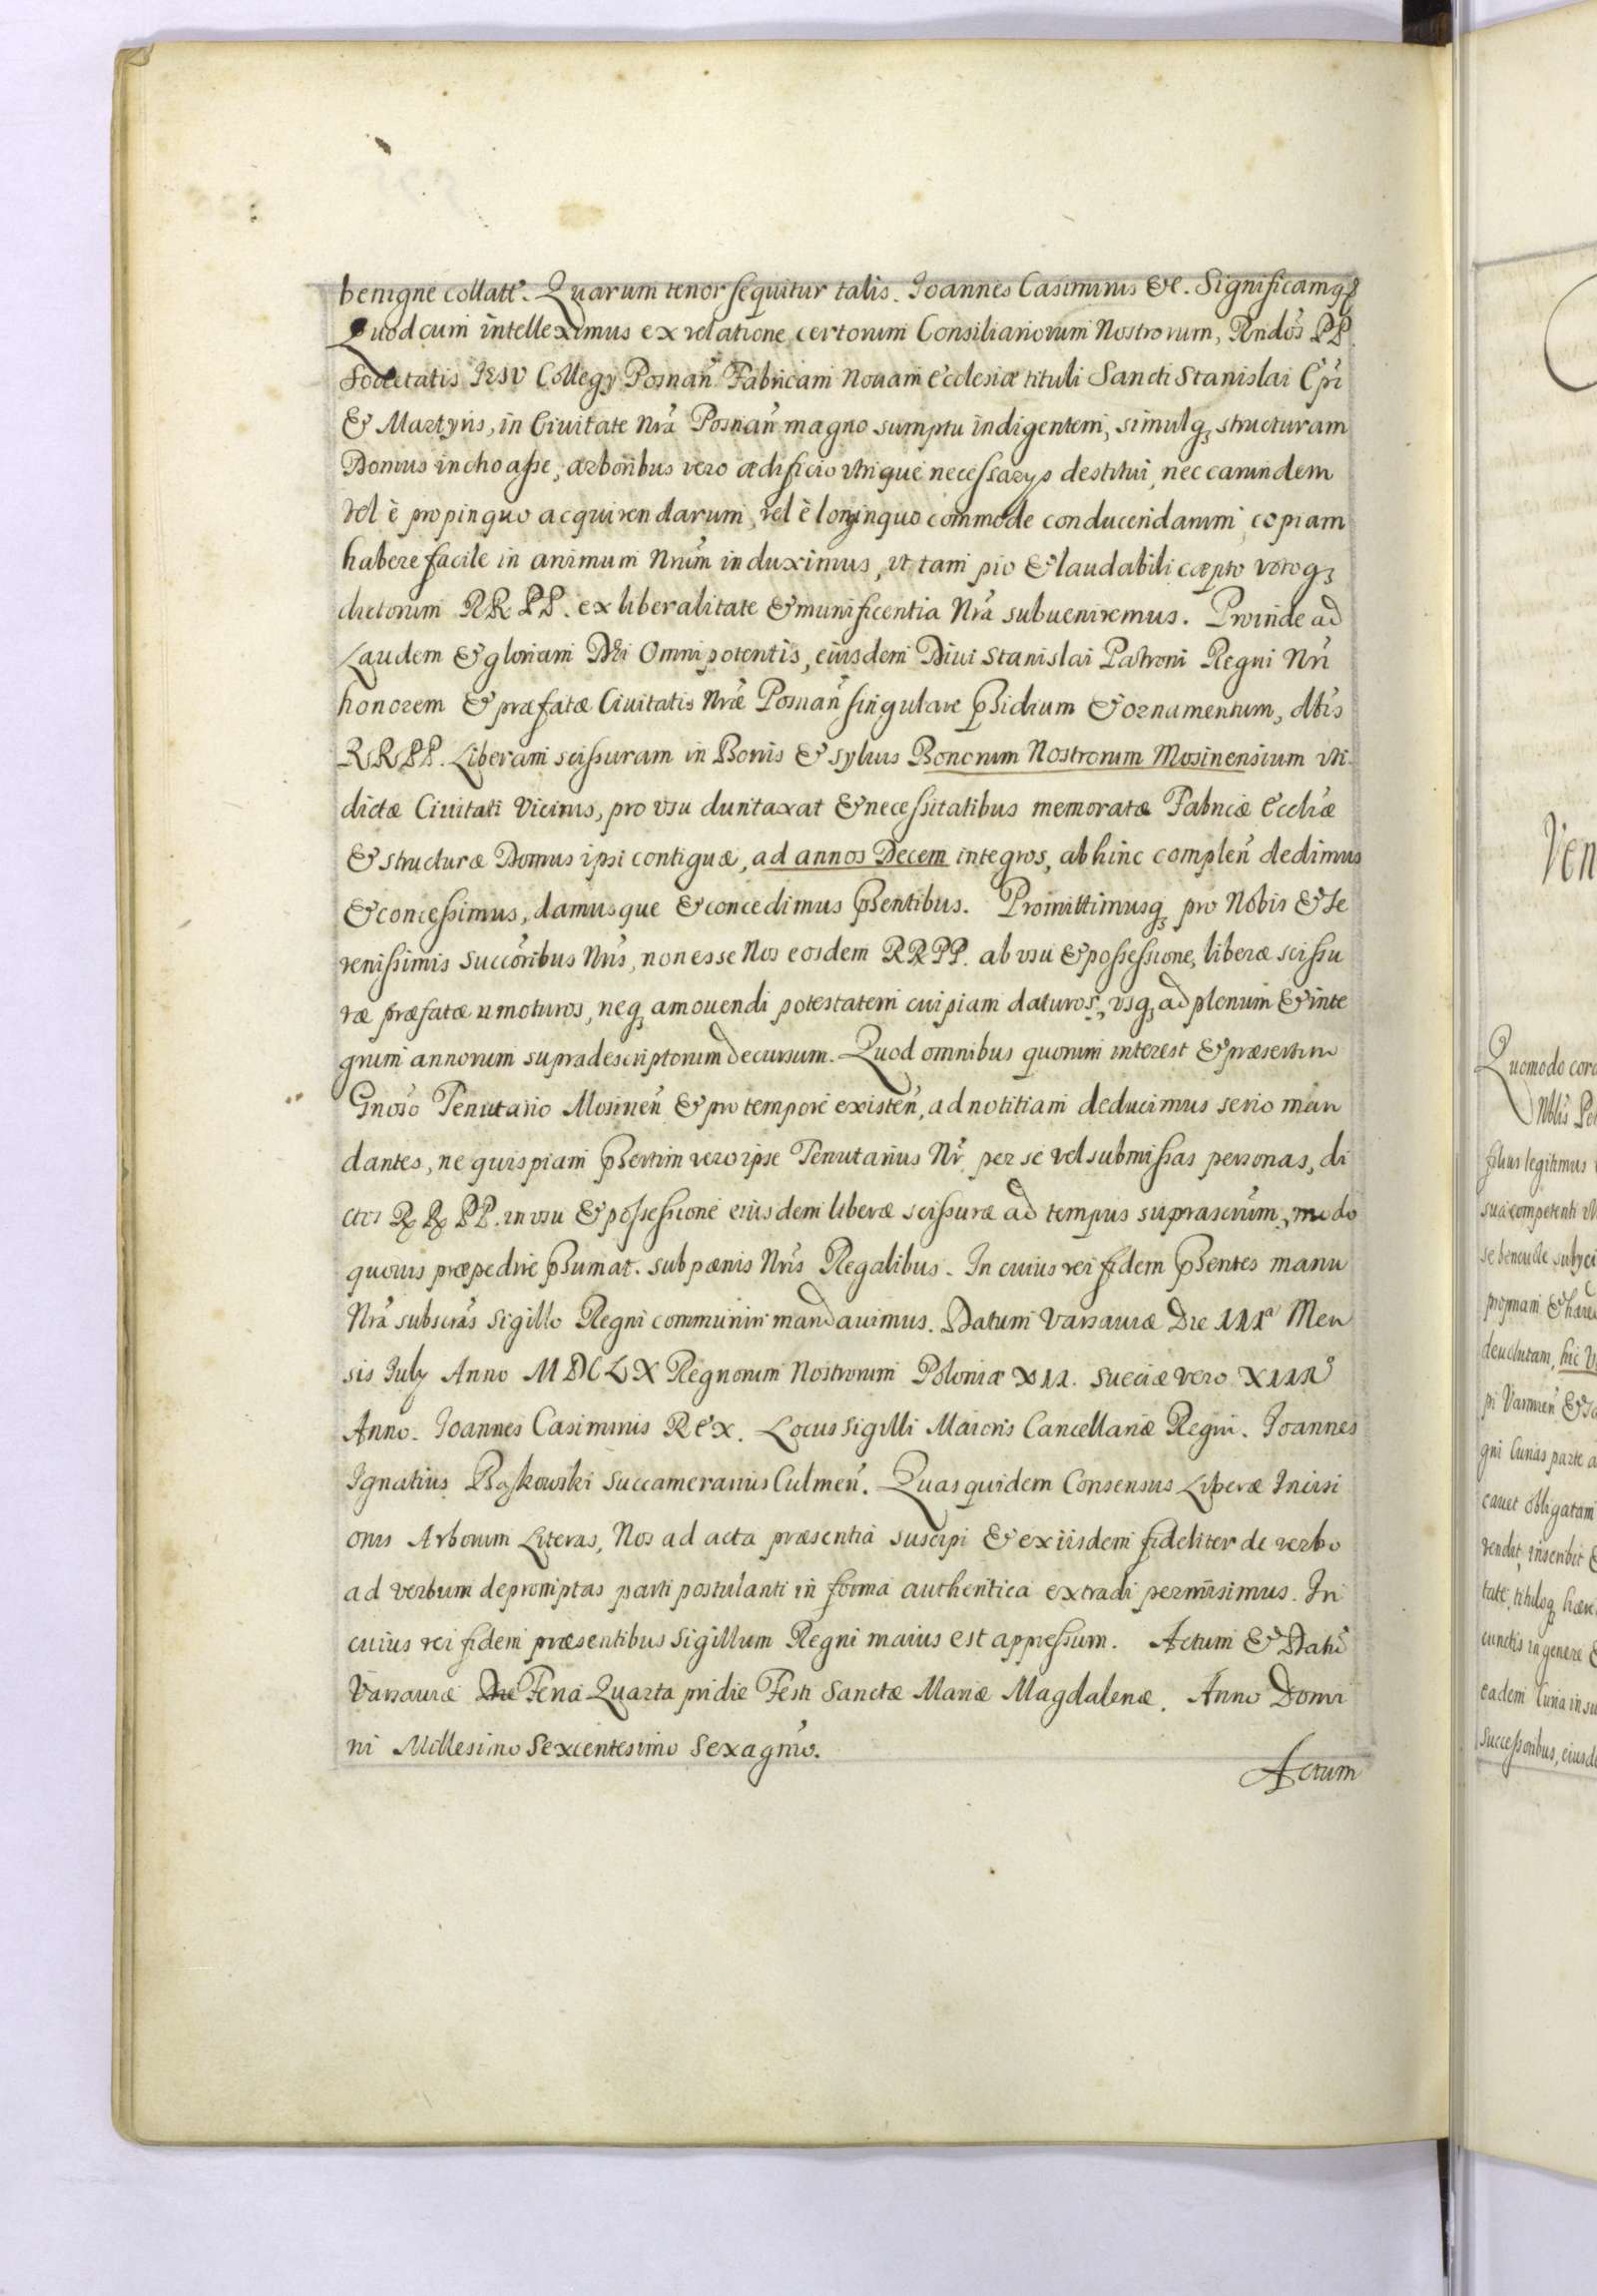 benigne collatt. Quarum tenor sequitur talis. Joannes Casimirus &c. Significamq
Quod cum intelleximus ex relatione certorum Consiliariorum Nostrorum, Rndos PP.
Societatis JESV Collegy Posnan Fabricam Nouam Ecclesiæ tituli Sancti Stanislai Epi
& Martyris, in Ciuitate Nra Posnan magno sumptu indigentem, simulq structuram
Domus inchoasse, arboribus vero ædificio vtrique necessarys destitui, nec earundem
vel è propinquo acquirendarum, vel è longinquo commode conducendarum copiam
habere facile in animum Nrum induximus, vt tam pio & laudabili cæpto votoq
dictorum RR PP. ex liberalitate & munificentia Nra subueniremus. Proinde ad
Laudem & gloriam Dei Omnipotentis, eiusdem Diui Stanislai Patroni Regni Nri
honorem & præfatæ Ciuitatis Nræ Posnan singulare psidium & ornamentum, dtis
RR PP. Liberam scissuram in Bonis & syluis Bonorum Nostrorum Mosinensium vti
dictæ Ciuitati vicinis, pro vsu duntaxat & necessitatibus memoratæ Fabricæ Eccliæ
& structuræ Domus ipsi contiguæ, ad annos Decem integros, abhinc complen dedimus
& concessimus, damusque & concedimus psentibus. Promittimusq pro Nobis & Se
renissimis Succoribus Nris, non esse Nos eosdem RR PP. ab vsu & possessione, liberæ scissu
ræ præfatæ amoturos, neq amouendi potestatem cuipiam daturos, vsq ad plenum & inte
grum annorum supradescriptorum decursum. Quod omnibus quorum interest & præsertim
Gnoso Tenutario Mosinen & pro tempore existen, ad notitiam deducimus serio man
dantes, ne quispiam psertim vero ipse Tenutarius Nr per se vel submissas personas, di
ctos RR PP. in vsu & possessione eiusdem liberæ scissuræ ad tempus suprascrum, modo
quouis præpedire psumat. sub pænis Nris Regalibus. In cuius rei fidem psentes manu
Nra subscras Sigillo Regni communiri mandauimus. Datum Varsauiæ Die IIIa Men
sis July Anno MDCLX Regnorum Nostrorum Poloniæ XII. Sueciæ vero XIII
Anno. Joannes Casimirus Rex. Locus Sigilli Maioris Cancellariæ Regni. Joannes
Ignatius Bąkowski Succamerarius Culmen. Quas quidem Consensus Liberæ Incisi
onis Arborum Literas, Nos ad acta præsentia suscipi & ex iisdem fideliter de verbo
ad verbum depromptas parti postulanti in forma authentica extradi permisimus. In
cuius rei fidem præsentibus Sigillum Regni maius est appressum. Actum & Datu
Varsauiæ Feria Quarta pridie Festi Sanctæ Mariæ Magdalenæ. Anno Domi
ni Millesimo Sexcentesimo Sexagmo.
Actum